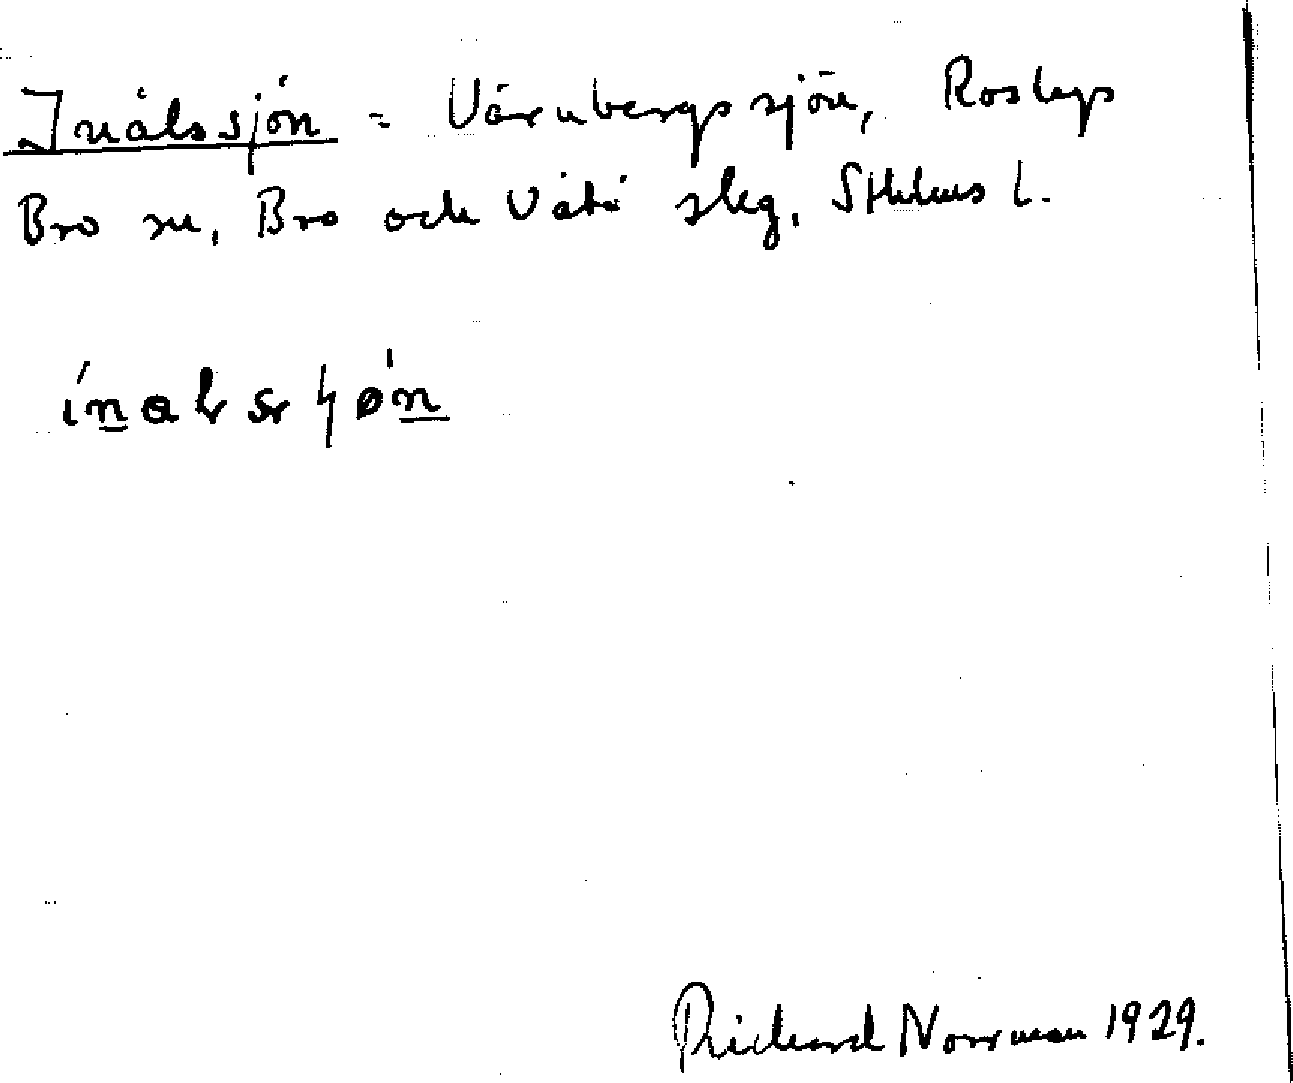 Inålssjön = Värnbergssjön, Roslags
Bro sn, Bro och Vätö slg, Sthlms l.
Richard Norrman 1929.